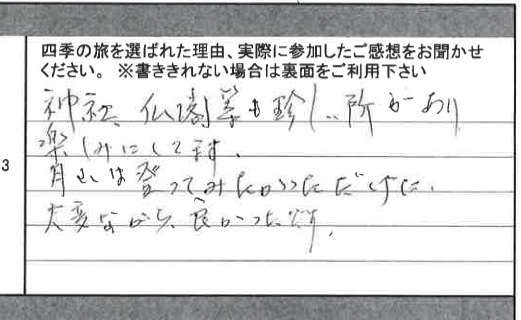 四季の旅を選ばれた理由、実際に参加したご感想をお聞かせ
ください。 ※書ききれない場合は裏面をご利用下さい
3
神社、仏閣等も珍しい所があり
楽しみにしてます。
月山は登ってみたかっただけに、
大変ながら、良かったです。